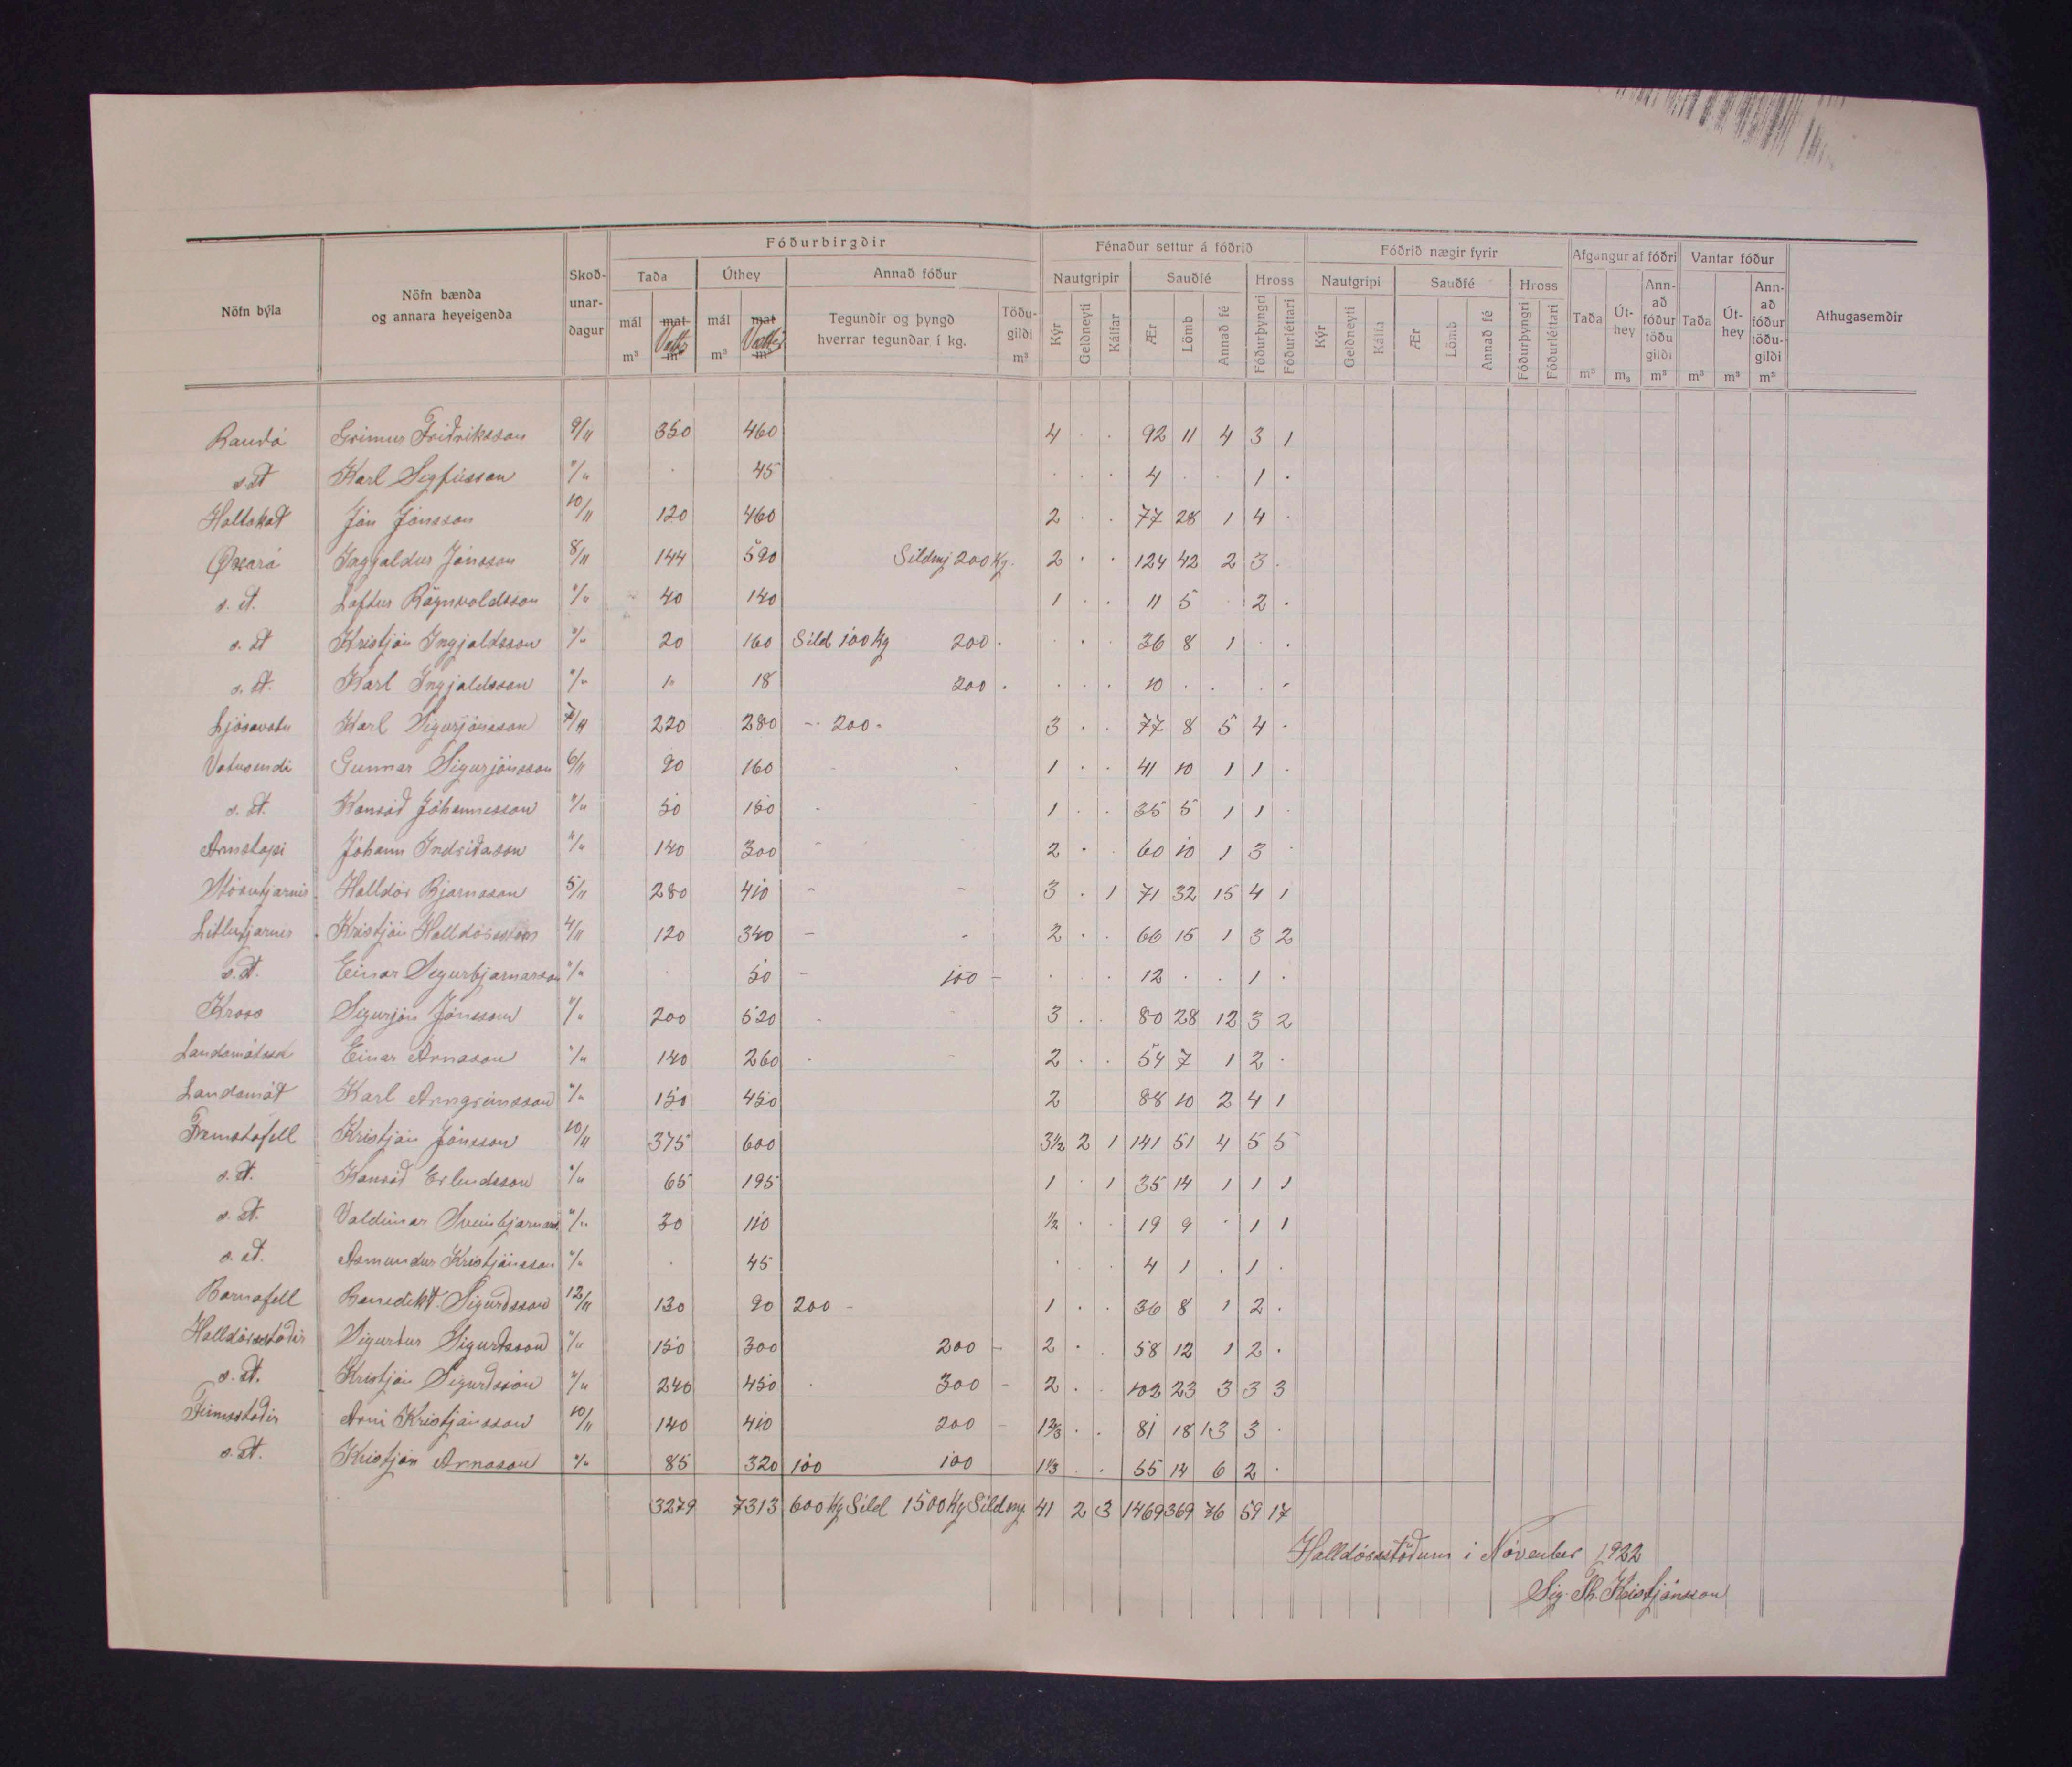 Fóðurbirgðir Fénaður settur á fóðrið Fóðrið nægir fyrir Afgangur af fóðri Vantar fóður
Nöfn býla Nöfn bænda og annara heyeigenda Skoð-unar-dagur Taða Úthey Annað fóður Nautgripir Sauðfé Hross Nautgripi Sauðfé Hross Taða Út-hey Ann-að fóður töðu gildi Taða Út-hey Ann-að fóður töðu-gildi Athugasemdir
mál m³ mat m³ mál m³ mat m³ Tegundir og þyngd hverrar tegundar í kg. Töðu-gildi m³ Kýr Geldneyti Kálfar Ær Lömb Annað fé Fóðurþyngri Fóðurléttari Kýr Geldneyti Kálfa Ær Lömb Annað fé Fóðurþyngri Fóðurléttari m³ m₃ m³ m³ m³ m³
Rauðá Grímur Friðriksson 9/11 350 460 4 . . 92 11 4 3 1
s.st Karl Sigfússon "/" . 45 . . . 4 . . 1 .
Holtakot Jón Jónsson 10/11 120 460 2 . . 77 28 1 4 .
Øxará Ingjaldur Jónsson 8/11 144 590 Síldmj 200 Kg. 2 . . 124 42 2 3 .
s.st. Loftur Rögnvaldsson "/" 40 140 1 . . 11 5 2 .
s.st Kristján Ingjaldsson "/" 20 160 Síld 100 Kg 200 . . . 36 8 1 . .
s.st. Karl Ingjaldsson "/" 18 200 . . . . 10 . . . .
Ljósavatn Karl Sigurjónsson 7/11 220 280 - 200 - 3 . . 77 8 5 4 .
Vatnsendi Gunnar Sigurjónsson 6/11 90 160 1 . . 41 10 1 1 .
s.st. Konráð Jóhannesson "/" 50 150 1 . . 35 5 1 1 .
Arnstapi Jóhann Indriðason "/" 140 300 2 . . 60 10 1 3 .
Stórutjarnir Halldór Bjarnason 5/11 280 410 - - 3 . 1 71 32 15 4 1
Litlutjarnir Kristján Halldórsson 4/11 120 340 - - 2 . . 66 15 1 3 2
s.st. Einar Sigurbjarnarson "/" . 50 - 100 - . . . 12 . . 1 .
Kross Sigurjón Jónsson "/" 200 520 3 . . 80 28 12 3 2
Einar Arnason "/" 140 260 2 . . 54 7 1 2 .
Landamót Karl Arngrímsson "/" 150 450 2 88 10 2 4 1
Fremstafell Kristján Jónsson 10/11 375 600 3½ 2 1 141 51 4 5 5
s.st. Konráð Erlendsson "/" 65 195 1 . 1 35 14 1 1 1
s.st. Valdimar "/" 30 110 ½ . . 19 9 . 1 1
s.st. Asmundur Kristjánsson "/" . 45 . . . 4 1 . 1 .
Barnafell Benedikt Sigurdsson 12/11 130 90 200 - 1 . . 36 8 1 2 .
Halldórsstaðir Sigurður Sigurðsson "/" 150 300 200 - 2 . . 58 12 1 2 .
s.st. Kristján Sigurðsson "/" 240 450 300 - 2 . . 102 23 3 3 3
Finnsstaðir Arni Kristjánsson 10/11 140 410 200 - 1⅔ . . 81 18 13 3 .
s.st. Kristján Arnason "/" 85 320 100 100 1⅓ . . 55 14 6 2 .
3279 7313 600 Kg Síld 1500 Kg Síldmj 41 2 3 1469 369 76 59 17
Halldórsstöðum í Nóvember 1922
Sig. Þh. Kristjánsson